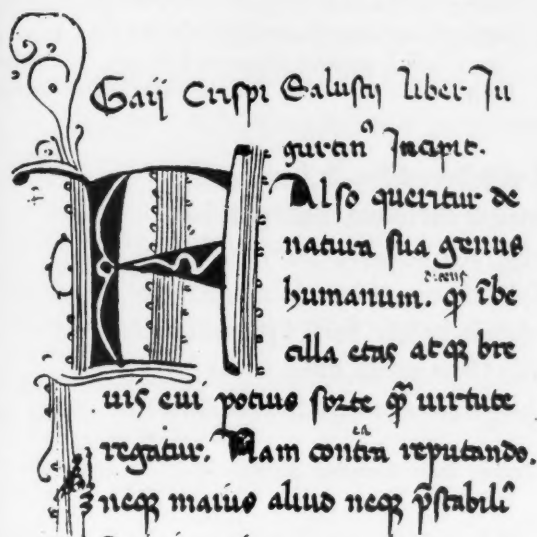 Gaij Crispi Salustij liber Ju
gurtinꝰ Incipit.
F Also queritur de
natura sua genus
humanum. ꝙ ībe
cilla etas atqꝫ bre
uis eui potius sorte ꝙ̃ uirtute
regatur. Nam contra reputando.
neqꝫ maius aliud neqꝫ p̄stabiliꝰ